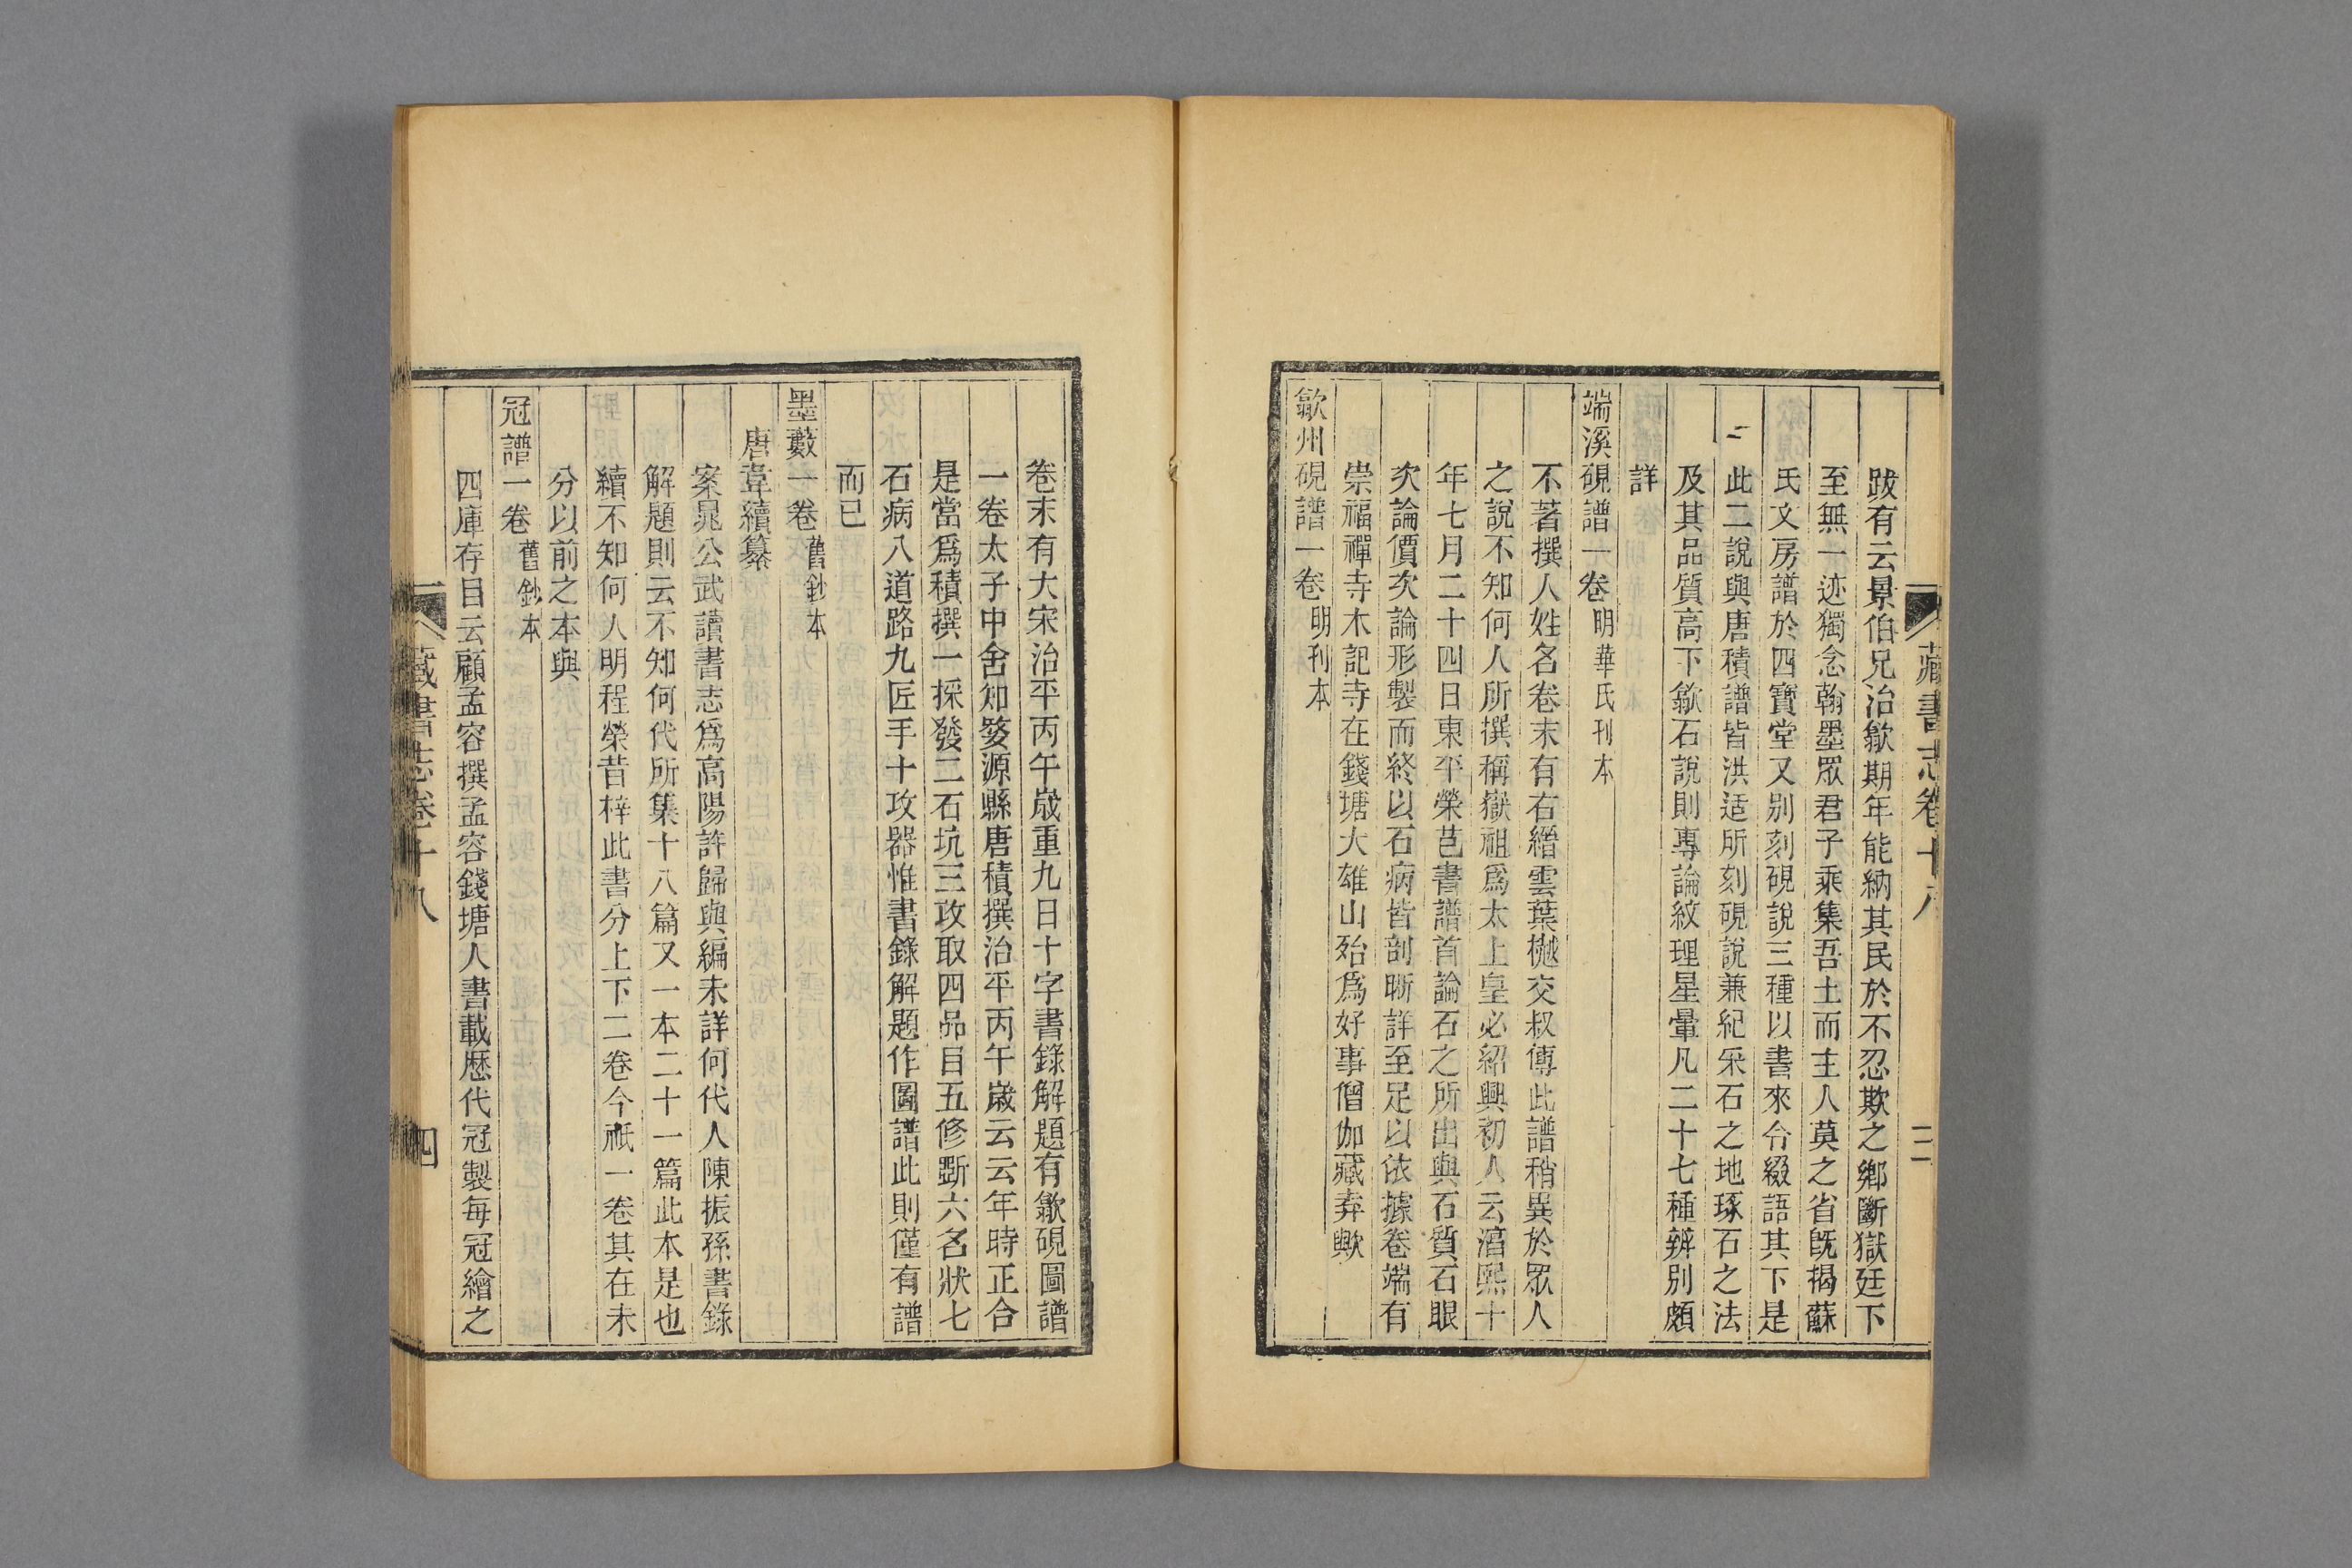 藏書志卷十八
三
跋有云景伯兄治歙期年能納其民於不忍欺之鄉斷獄廷下
至無一迹獨念翰墨眾君子乘集吾土而主人莫之省旣揭蘇
氏文房譜於四寶堂又別刻硯說三種以書來令綴語其下是
此二說與唐積譜皆洪适所刻硯說兼紀采石之地琢石之法
及其品質高下歙石說則專論紋理星暈凡二十七種辨別頗
詳
端溪硯譜一卷明華氏刊本
不著撰人姓名卷末有右縉雲葉樾交叔傳此譜稍異於眾人
之說不知何人所撰稱嶽祖爲太上皇必紹興初人云湻熙十
年七月二十四日東平榮芑書譜首論石之所出與石質石眼
次論價次論形製而終以石病皆剖晰詳至足以依據卷端有
崇福禪寺木記寺在錢塘大雄山殆爲好事僧伽藏弆歟
歙州硯譜一卷明刊本
卷末有大宋治平丙午歲重九日十字書錄解題有歙硯圖譜
一卷太子中舍知婺源縣唐積撰治平丙午歲云云年時正合
是當爲積撰一採發二石坑三攻取四品目五修斲六名狀七
石病八道路九匠手十攻器惟書錄解題作圖譜此則僅有譜
而已
墨藪一卷舊鈔本
唐韋續纂
案晁公武讀書志爲高陽許歸與編未詳何代人陳振孫書錄
解題則云不知何代所集十八篇又一本二十一篇此本是也
續不知何人明程榮昔梓此書分上下二卷今祇一卷其在未
分以前之本與
冠譜一卷舊鈔本
四庫存目云顧孟容撰孟容錢塘人書載歷代冠製每冠繪之
藏書志卷十八
四